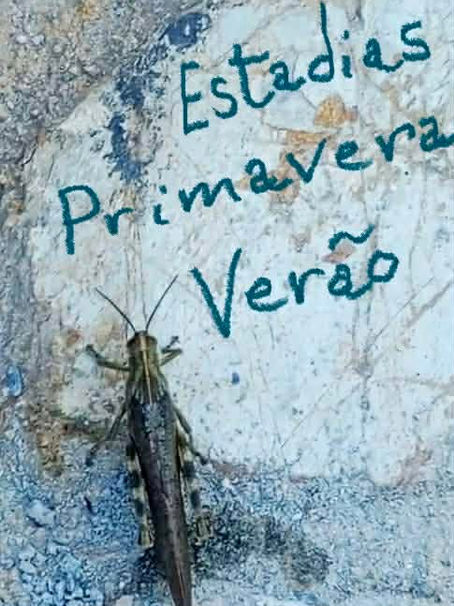 Estadias
Primavera
Verão